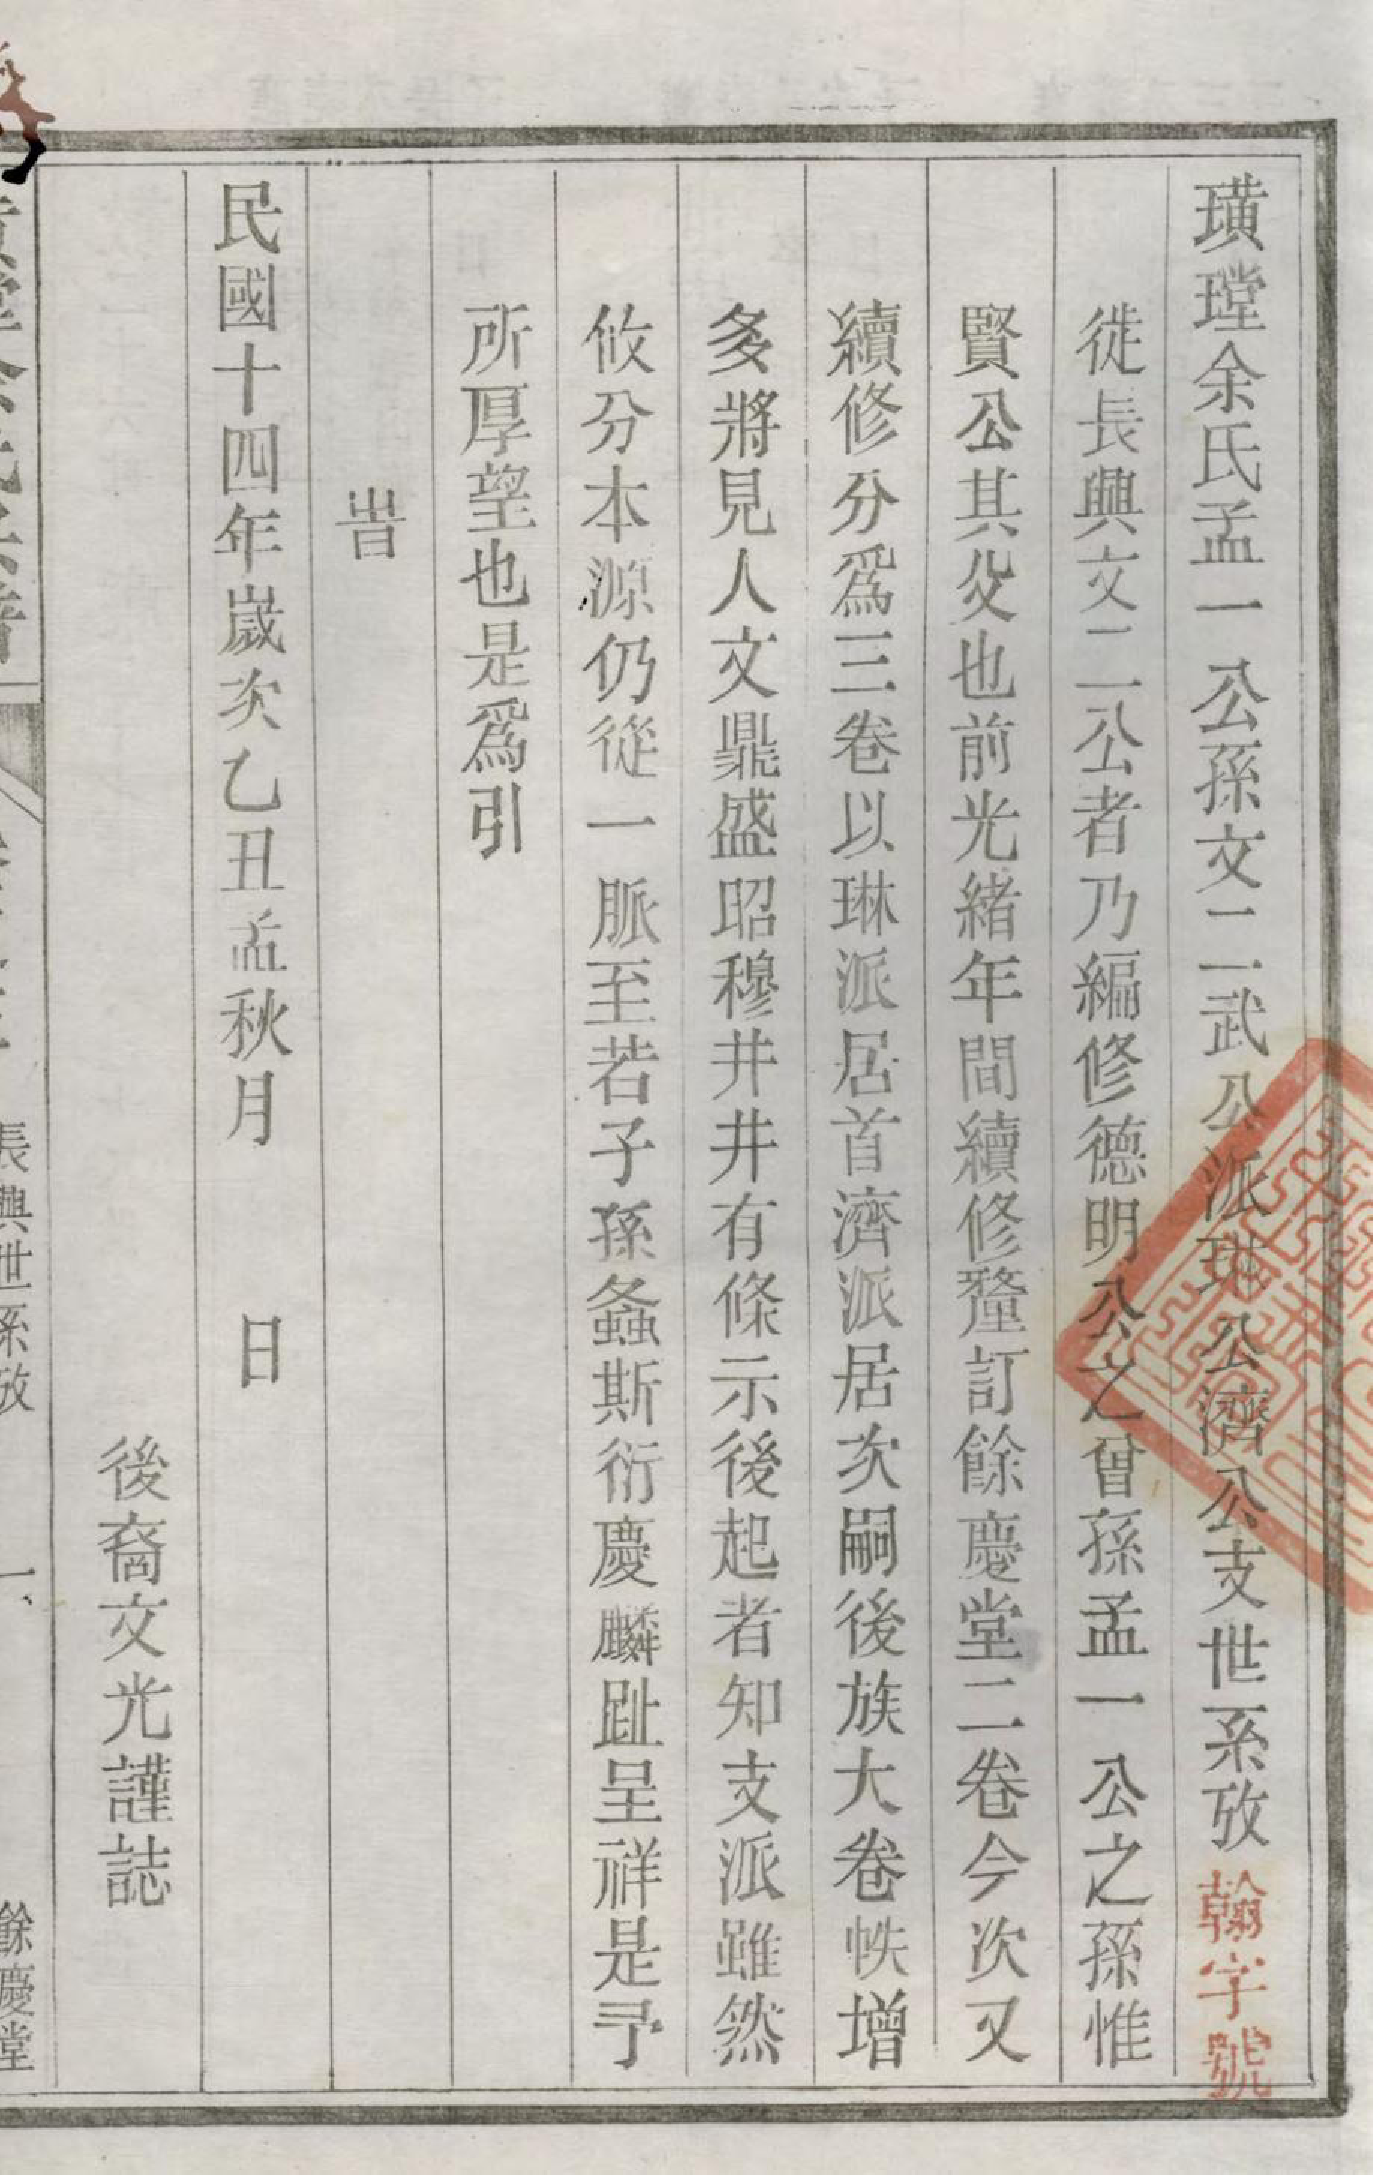 璜瑝余氏孟一公孫文二武公派琳公濟公支世系攷
翰字號
徙長興文二公者乃編修德明公之曾孫孟一公之孫惟
賢公其父也前光緒年間續修釐訂餘慶堂二卷今次又
續修分爲三卷以琳派居首濟派居次嗣後族大卷帙增
多將見人文鼎盛昭穆井井有條示後起者知支派雖然
攸分本源仍從一脈至若子孫螽斯衍慶麟趾呈祥是予
所厚望也是爲引
旹
民國十四年歲次乙丑孟秋月 日
後裔文光謹誌
長興世系攷 一 餘慶堂